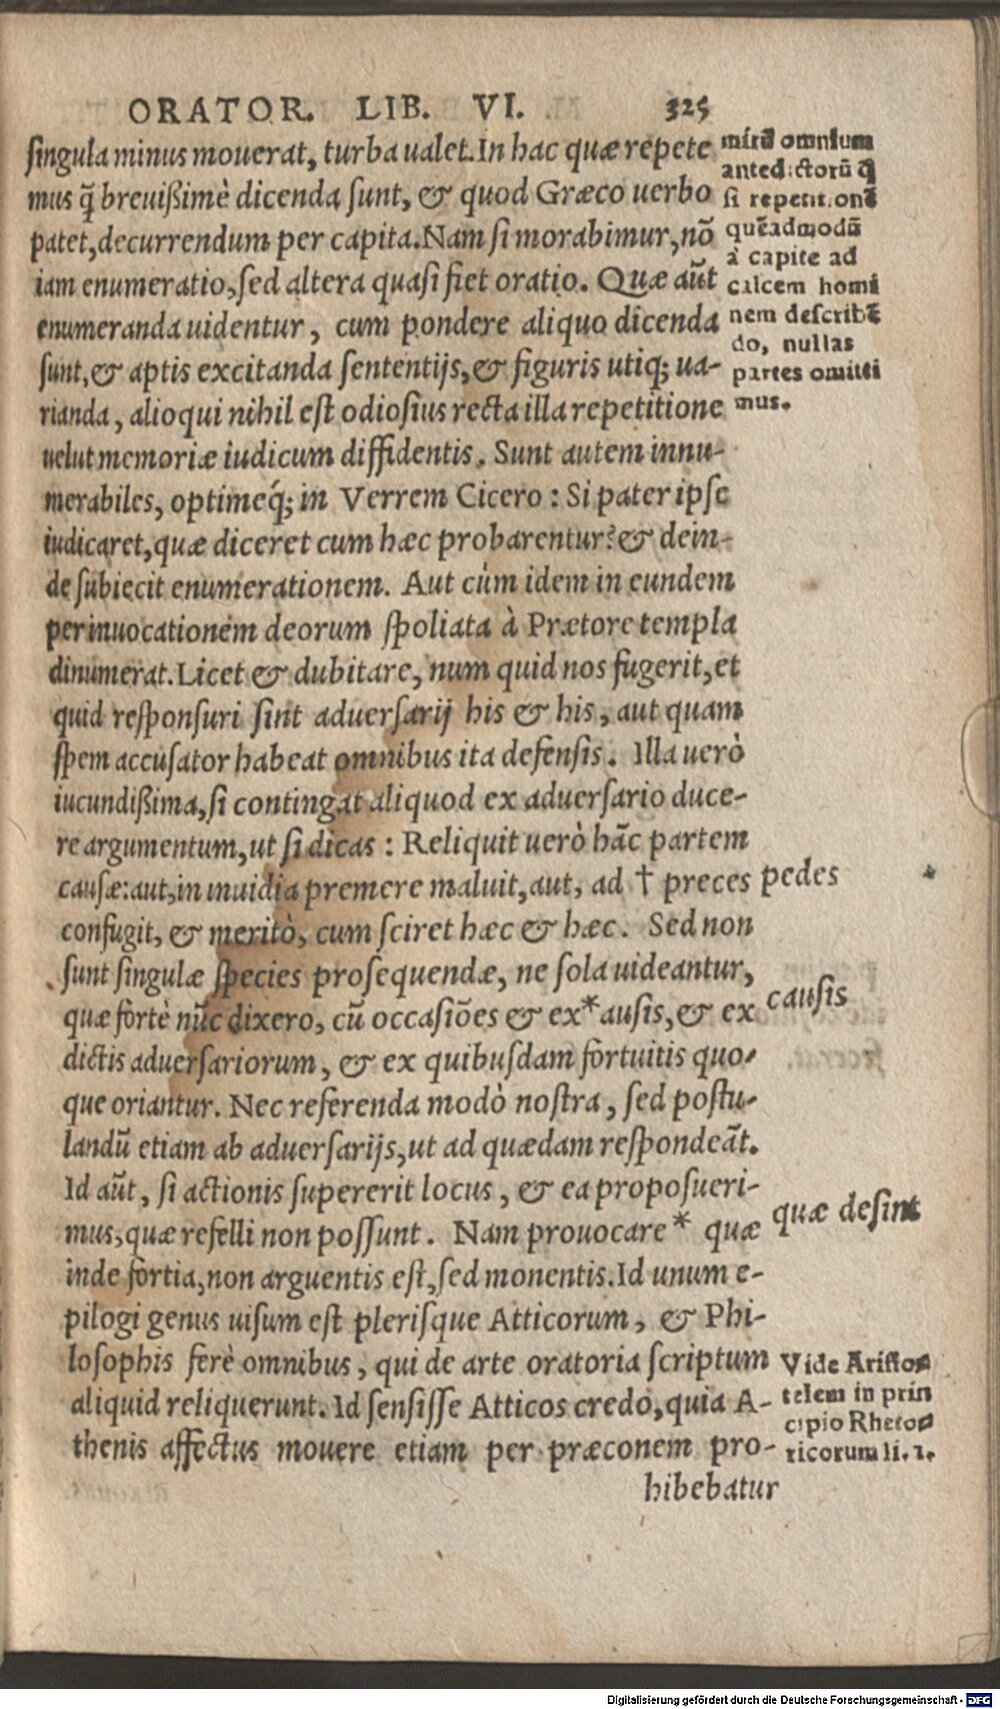 ORATOR. LIB. VI. 325
singula minus mouerat, turba ualet. In hac quæ repete
mus q̃ breuißimè dicenda sunt, & quod Græco uerbo
patet, decurrendum per capita. Nam si morabimur, nõ
iam enumeratio, sed altera quasi fiet oratio. Quæ aũt
enumeranda uidentur, cum pondere aliquo dicenda
sunt, & aptis excitanda sententijs, & figuris utiq; ua-
rianda, alioqui nihil est odiosius recta illa repetitione
uelut memoriæ iudicum diffidentis. Sunt autem innu-
merabiles, optimeq́; in Verrem Cicero: Si pater ipse
iudicaret, quæ diceret cum hæc probarentur? & dein-
de subiecit enumerationem. Aut cùm idem in eundem
per inuocationem deorum spoliata à Prætore templa
dinumerat. Licet & dubitare, num quid nos fugerit, et
quid responsuri sint aduersarij his & his, aut quam
spem accusator habeat omnibus ita defensis. Illa uerò
iucundißima, si contingat aliquod ex aduersario duce-
re argumentum, ut si dicas: Reliquit uerò hãc partem
causæ: aut, in inuidia premere maluit, aut, ad † preces
confugit, & meritò, cum sciret hæc & hæc. Sed non
sunt singulæ species prosequendæ, ne sola uideantur,
quæ fortè nũc dixero, cũ occasiões & ex * ausis, & ex
dictis aduersariorum, & ex quibusdam fortuitis quo-
que oriantur. Nec referenda modò nostra, sed postu-
landũ etiam ab aduersarijs, ut ad quædam respondeãt.
Id aũt, si actionis supererit locus, & ea proposueri-
mus, quæ refelli non possunt. Nam prouocare * quæ
inde fortia, non arguentis est, sed monentis. Id unum e-
pilogi genus uisum est plerisque Atticorum, & Phi-
losophis ferè omnibus, qui de arte oratoria scriptum
aliquid reliquerunt. Id sensisse Atticos credo, quia A-
thenis affectus mouere etiam per præconem pro-
hibebatur
mirũ omnium
antedictorũ q̃
si repetitionẽ
quẽadmodũ
à capite ad
calcem homi
nem describẽ
do, nullas
partes omitti
mus.
pedes
causis
quæ desint
Vide Aristo-
telem in prin
cipio Rheto-
ricorum li. 1.
Digitalisierung gefördert durch die Deutsche Forschungsgemeinschaft - DFG